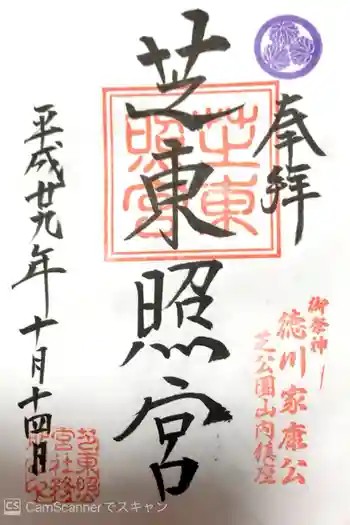 奉拝
御祭神
徳川家康公
芝公園山内鎮座
芝東照宮
芝東照宮
平成廿九年十月十四日
芝東照
宮社務
CS CamScannerでスキャン